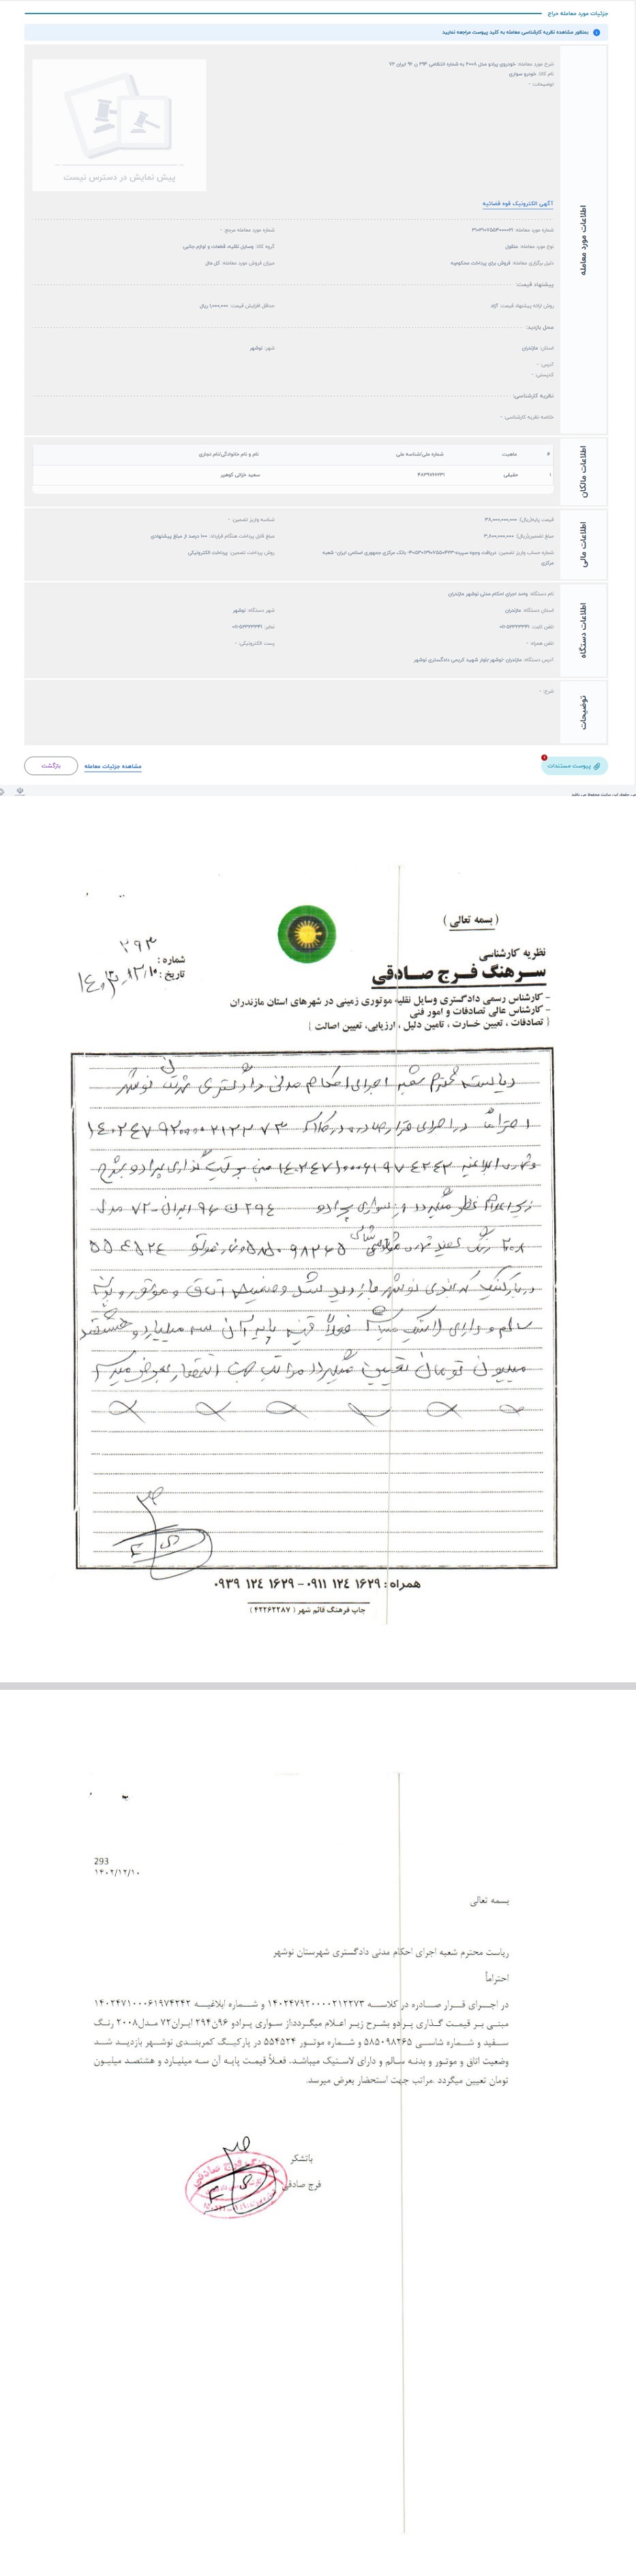 جزئیات مورد معامله حراج
بمنظور مشاهده نظریه کارشناسی معامله به کلید پیوست مراجعه نمایید
اطلاعات مورد معامله
شرح مورد معامله: خودروی پرادو مدل ۲۰۰۸ به شماره انتظامی ۲۹۴ ن ۹۶ ایران ۷۲
نام کالا: خودرو سواری
توضیحات: -
پیش نمایش در دسترس نیست
آگهی الکترونیک قوه قضائیه
شماره مورد معامله مرجع: -
نوع مورد معامله: منقول
گروه کالا: وسایل نقلیه، قطعات و لوازم جانبی
دلیل برگزاری معامله: فروش برای پرداخت محکوم‌به
میزان فروش مورد معامله: کل مال
پیشنهاد قیمت:
روش ارائه پیشنهاد قیمت: آزاد
حداقل افزایش قیمت: ۱,۰۰۰,۰۰۰ ریال
محل بازدید:
استان: مازندران
شهر: نوشهر
آدرس: -
کدپستی: -
نظریه کارشناسی:
خلاصه نظریه کارشناسی: -
اطلاعات مالکان
# ماهیت شماره ملی/شناسه ملی نام و نام خانوادگی/نام تجاری
۱ حقیقی سعید خزائی کوهپر
اطلاعات مالی
قیمت پایه(ریال): ۳۸,۰۰۰,۰۰۰,۰۰۰
شناسه واریز تضمین: -
مبلغ تضمین(ریال): ۳,۸۰۰,۰۰۰,۰۰۰
مبلغ قابل پرداخت هنگام قرارداد: ۱۰۰ درصد از مبلغ پیشنهادی
بانک مرکزی جمهوری اسلامی ایران- شعبه
مرکزی
روش پرداخت تضمین: پرداخت الکترونیکی
اطلاعات دستگاه
نام دستگاه: واحد اجرای احکام مدنی نوشهر مازندران
استان دستگاه: مازندران
شهر دستگاه: نوشهر
تلفن همراه: -
پست الکترونیکی: -
آدرس دستگاه: مازندران -نوشهر-بلوار شهید کریمی دادگستری نوشهر
توضیحات
شرح: -
پیوست مستندات
۱
مشاهده جزئیات معامله
بازگشت
(بسمه تعالی)
نظریه کارشناسی
سرهنگ فرج صادقی
شماره: ۲۹۳
تاریخ: ۱۴۰۲/۱۲/۱۰
- کارشناس رسمی دادگستری وسایل نقلیه موتوری زمینی در شهرهای استان مازندران
- کارشناس عالی تصادفات و امور فنی
{ تصادفات ، تعیین خسارت ، تامین دلیل ، ارزیابی، تعیین اصالت }
ریاست محترم شعبه اجرای احکام مدنی دادگستری شهرستان نوشهر
احتراماً در اجرای قرار صادره در کلاسه ۱۴۰۲۴۷۹۲۰۰۰۰۲۱۲۲۷۳
و شماره ابلاغیه ۱۴۰۲۴۷۱۰۰۰۶۱۹۷۴۲۴۲ مبنی بر قیمت گذاری پرادو بشرح
زیر اعلام نظر میگردد از سواری پرادو ۲۹٤ ن ۹۶ ایران-۷۲ مدل
۲۰۰۸ رنگ سفید و شماره شاسی ۵۸۵۰۹۸۲۶۵ و شماره موتور ۵۵٤۵۲٤
در پارکینگ کمربندی نوشهر بازدید شد وضعیت اتاق و موتور و بدنه
سالم و دارای لاستیک میباشد فعلاً قیمت پایه آن سه میلیارد و هشتصد
میلیون تومان تعیین میگردد مراتب جهت استحضار بعرض میرسد
همراه: ۱۶۲۹ ۱۲٤ ۰۹۱۱ - ۱۶۲۹ ۱۲٤ ۰۹۳۹
چاپ فرهنگ قائم شهر (۴۲۲۶۲۲۸۷)
293
۱۴۰۲/۱۲/۱۰
بسمه تعالی
ریاست محترم شعبه اجرای احکام مدنی دادگستری شهرستان نوشهر
احتراماً
در اجرای قرار صادره در کلاسه ۱۴۰۲۴۷۹۲۰۰۰۰۲۱۲۲۷۳ و شماره ابلاغیه ۱۴۰۲۴۷۱۰۰۰۶۱۹۷۴۲۴۲
مبنی بر قیمت گذاری پرادو بشرح زیر اعلام میگردد:از سواری پرادو ۹۶ن۲۹۴ ایران۷۲ مدل۲۰۰۸ رنگ
سفید و شماره شاسی ۵۸۵۰۹۸۲۶۵ و شماره موتور ۵۵۴۵۲۴ در پارکینگ کمربندی نوشهر بازدید شد
وضعیت اتاق و موتور و بدنه سالم و دارای لاستیک میباشد. فعلاً قیمت پایه آن سه میلیارد و هشتصد میلیون
تومان تعیین میگردد .مراتب جهت استحضار بعرض میرسد.
باتشکر
فرج صادقی